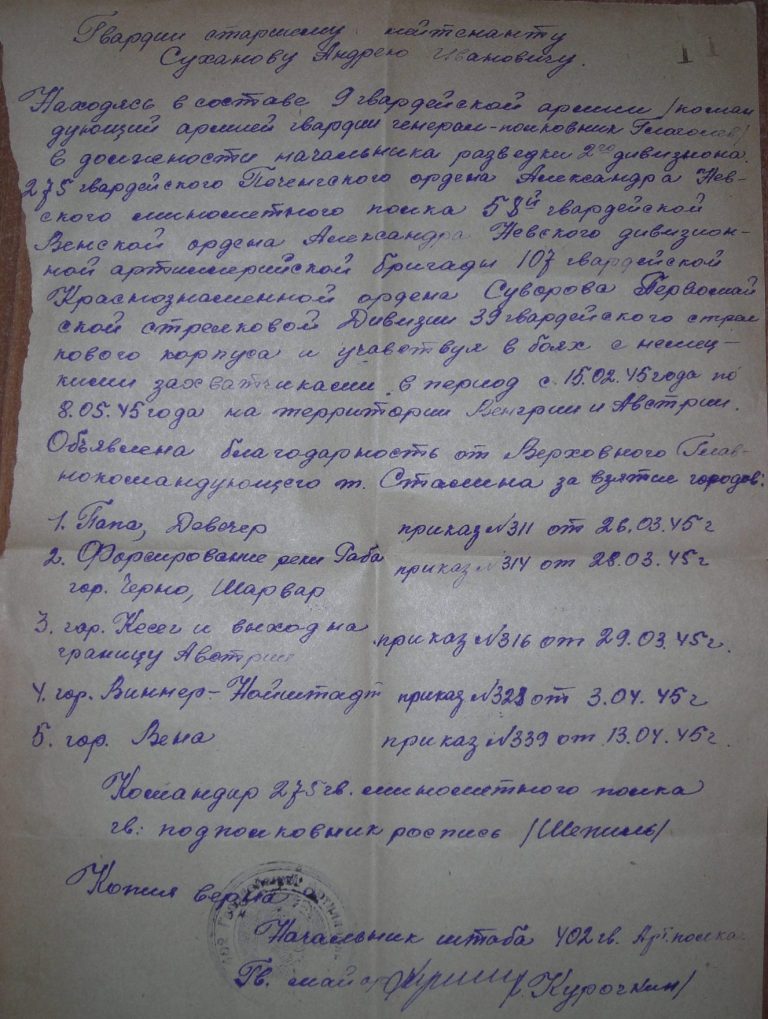 Гвардии старшему лейтенанту
Суханову Андрею Ивановичу.
11
Находясь в составе 9 гвардейской армии /коман
дующий армией гвардии генерал-полковник Глаголев/
в должности начальника разведки 2го дивизиона.
275 гвардейского Печенгского ордена Александра Нев-
ского минометного полка 58й гвардейской
Венской ордена Александра Невского дивизион-
ной артиллерийской бригады 107 гвардейской
Краснознаменной ордена Суворова Первомай
ской стрелковой Дивизии 39 гвардейского стрел
кового корпуса и учавствуя в боях с немец-
кими захватчиками в период с 15.02.45 года по
8.05.45 года на территории Венгрии и Австрии.
Объявлена благодарность от Верховного Глав-
нокомандующего т. Сталина за взятие городов:
1. Папа, Девечер приказ №311 от 26.03.45 г
2. Форсирование реки Раба приказ №314 от 28.03.45 г
гор. Черно, Шарвар
3. гор. Кесег и выход на приказ №316 от 29.03.45 г.
границу Австрии
4. гор. Виннер-Нойштадт приказ №328 от 3.04.45 г
5. гор. Вена приказ №339 от 13.04.45 г.
Командир 275 гв. минометного полка
гв. подполковник роспись /Шепиль/
Копия верна
Начальник штаба 402 гв. Арт. полка
Гв. майор /Курочкин/